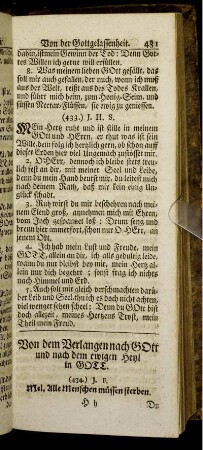 Von der Gottgelassenheit. 481
dahin, ist mein Gewinn der Tod: Denn Got-
tes Willen ich gerne will erfüllen.
8. Was meinem lieben GOtt gefällt, das
soll mir auch gefallen, der ruch, wenn ich muß
aus der Welt, reißt aus des Todes Krallen,
und führt mich heim, zum Honig-Seim, und
süssen Nectar-Flüssen, sie ewig zu geniessen.
(433.) J. H. S.
MEin Hertz ruhe und ist stille in meinem
GOtt und HErrn, er thut was ist sein
Wille, dem folg ich hertzlich gern, ob schon auff
dieser Erden hier viel Ungemach zustösset mir.
2. O HErr, dennoch ich bleibe stets treu-
lich fest an dir, mit meiner Seel und Leibe,
denn du mein Hand heurst mir, du leitest mich
nach deinem Rath, daß mir kein einig Un-
glück schadt.
3. Ruh wirst du mir bescheren nach mei-
nem Elend groß, annehmen mich mit Ehren,
von Joch gespannet loß: Drum sorg und
brenn hier immerfort, schon nur O HErr, an
jenem Ort.
4. Ich hab mein Lust und Freude, mein
GOTT, allein an dir, ich alls gedultig leide,
wann du nur bleibst bey mir, mein Hertz al-
lein nur dich begehrt; sonst frag ich nichts
nach Himmel und Erd.
5. Auch soll mir gleich verschmachten darü-
ber Leib und Seel, thu ich es doch nicht achten,
viel weniger sehen scheel: Denn du GOtt bist
doch allezeit, meines Hertzens Trost, mein
Theil mein Freud.
Von dem Verlangen nach GOtt
und nach dem ewigen Heyl
in GOTT.
(434.) J. v.
Mel. Alle Menschen müssen sterben.
H h